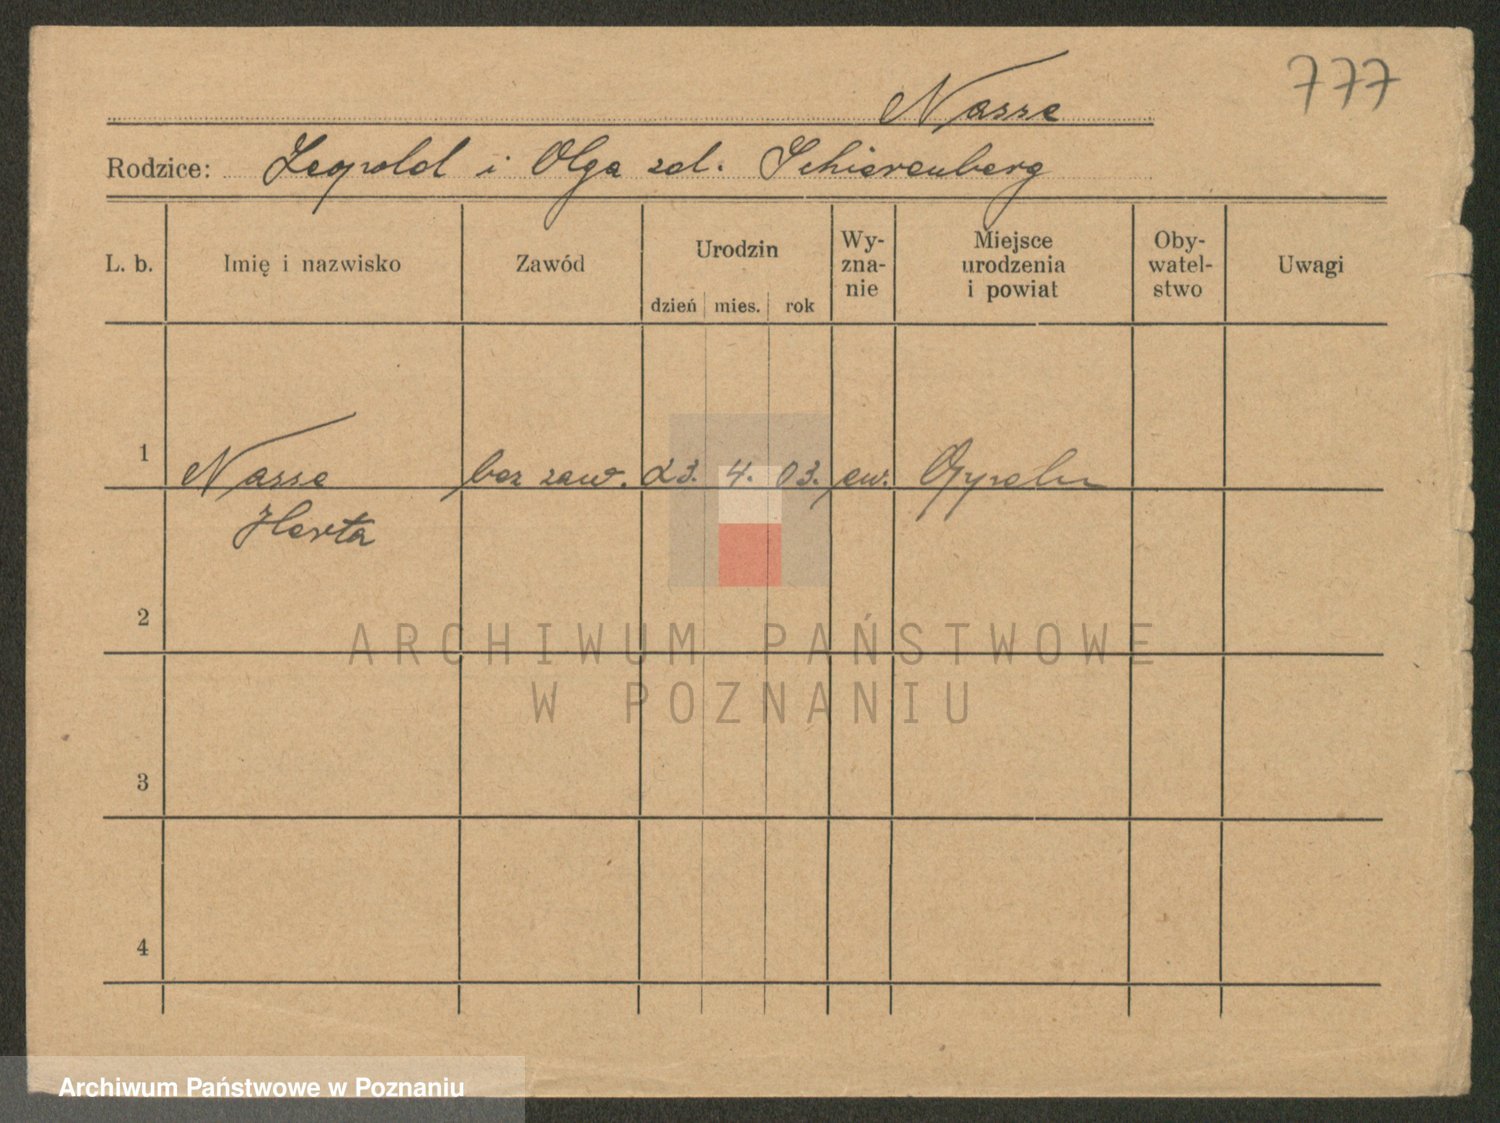 777
Nasse
Rodzice: Leopold i Olga zd. Schierenberg
L. b. Imię i nazwisko Zawód Urodzin dzień mies. rok Wy-zna-nie Miejsce urodzenia i powiat Oby-watel-stwo Uwagi
1 Nasse bez zaw. 23. 4. 03. ew. Oppeln
Herta
2
ARCHIWUM PAŃSTWOWE
W POZNANIU
3
4
Archiwum Państwowe w Poznaniu